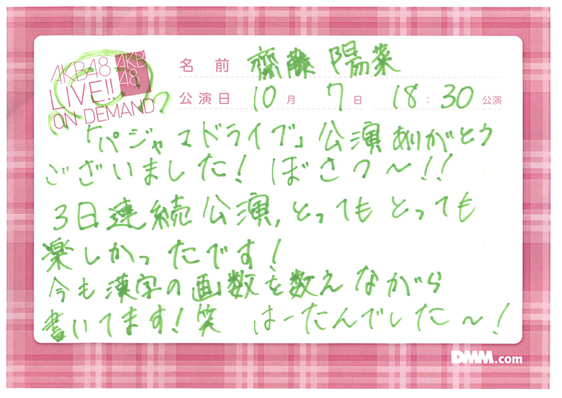 AKB48
LIVE!!
ON DEMAND
AKB
48
名前 齋藤 陽菜
公演日 10月 7日 18:30公演
「パジャマドライブ」公演ありがとう
ございました! ぼさつ〜!!
3日連続公演, とってもとっても
楽しかったです!
今も漢字の画数を数えながら
書いてます!笑 はーたんでした〜!
DMM.com